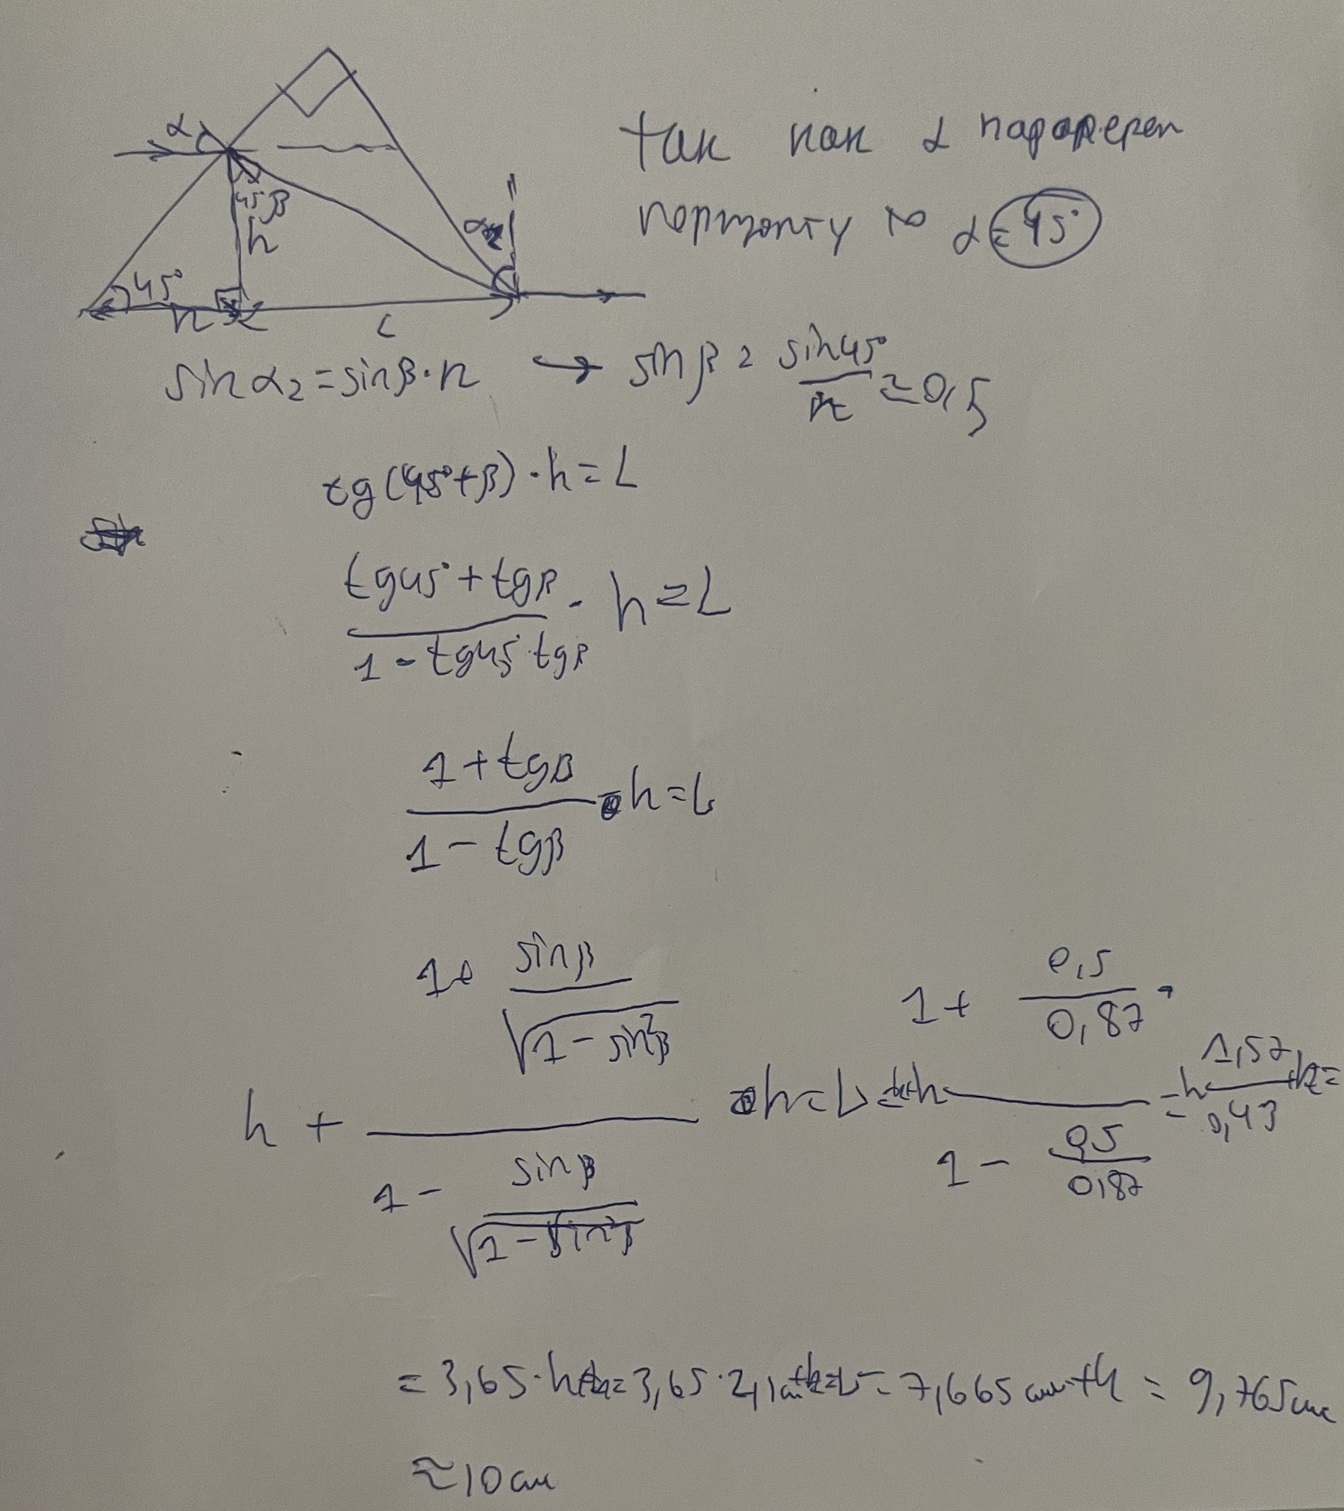 α
45°
β
h
α₂
45°
h
L
так как α параллелен
горизонту то α = 45°
sin α₂ = sin β · n → sin β = sin 45° / n ≈ 0,5
tg(45° + β) · h = L
(tg 45° + tg β) / (1 - tg 45° · tg β) · h = L
(1 + tg β) / (1 - tg β) · h = L
h + (1 + sin β / √(1 - sin² β)) / (1 - sin β / √(1 - sin² β)) · h = L = h (1 + 0,5 / 0,87) / (1 - 0,5 / 0,87) = h 1,57 / 0,43 + h =
= 3,65 · h + h = 3,65 · 2,1 см + h = L = 7,665 см + h = 9,765 см
≈ 10 см